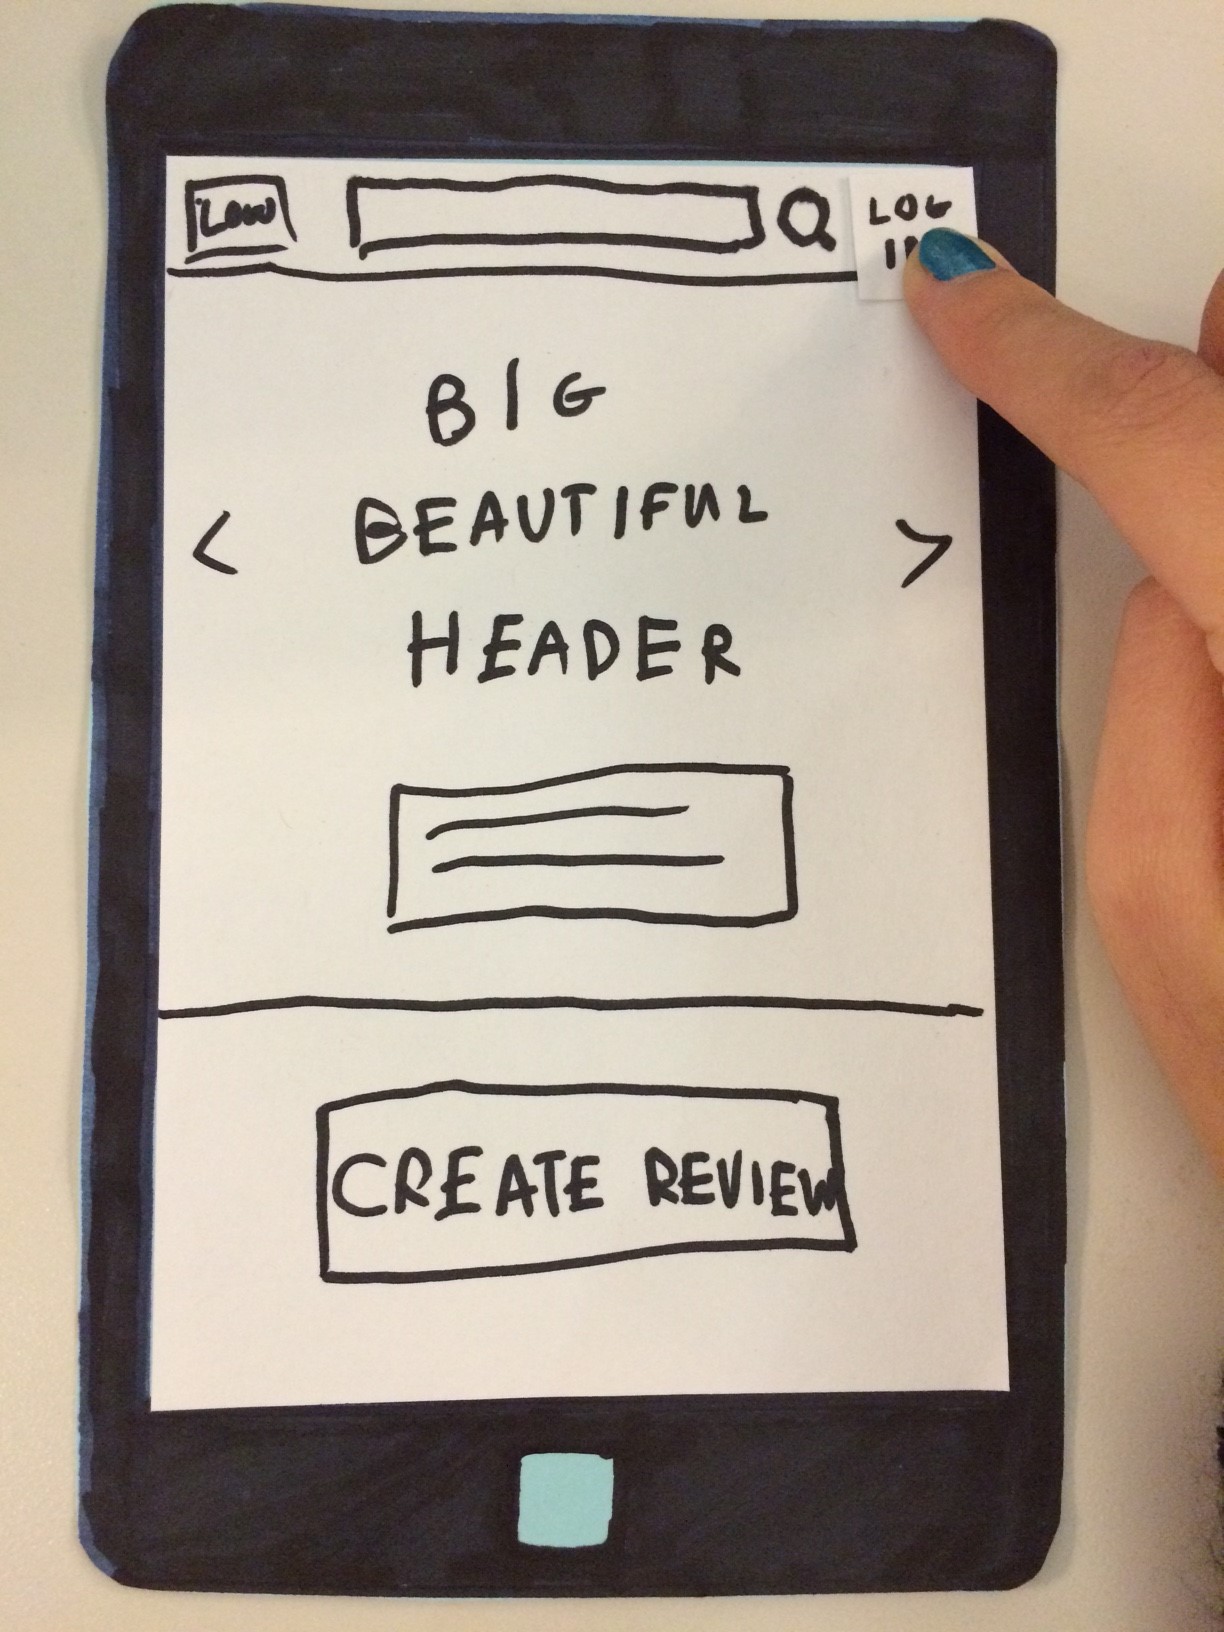 LOG
IN
BIG
BEAUTIFUL
HEADER
CREATE REVIEW